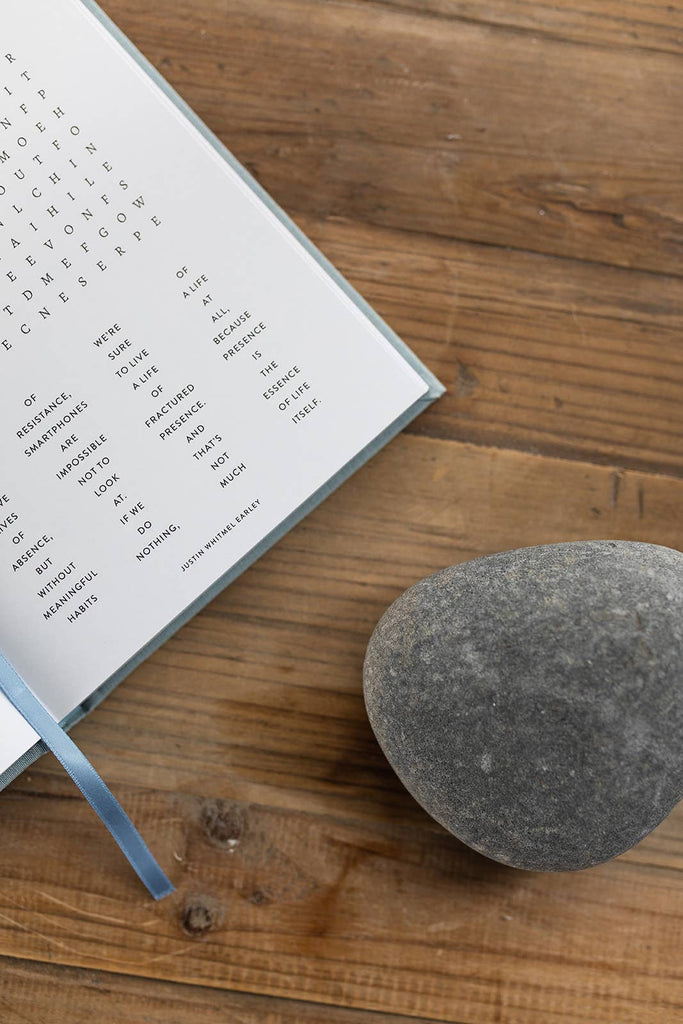 R
I T
N F P
M O E H
O U T F O
N L C H I N
A I H I L E
E E V O N F S
T D M E F G O W
E C N E S E R P E
OF
ABSENCE,
BUT
WITHOUT
MEANINGFUL
HABITS
OF
RESISTANCE,
SMARTPHONES
ARE
IMPOSSIBLE
NOT TO
LOOK
AT.
IF WE
DO
NOTHING,
WE'RE
SURE
TO LIVE
A LIFE
OF
FRACTURED
PRESENCE.
AND
THAT'S
NOT
MUCH
OF
A LIFE
AT
ALL,
BECAUSE
PRESENCE
IS
THE
ESSENCE
OF LIFE
ITSELF.
JUSTIN WHITMEL EARLEY